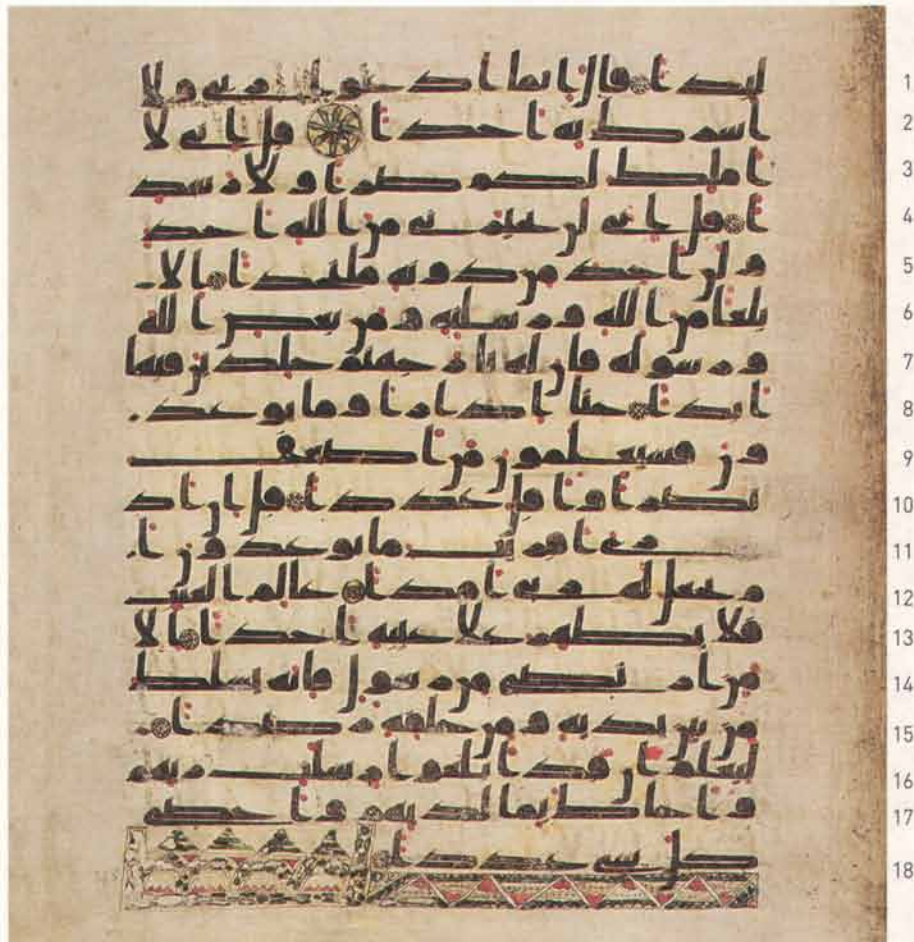 1 لبدا قال انما ادعوا ربى ولا
2 اشرك به احدا قل انى لا
3 املك لكم ضرا ولا رشد
4 ا قل انى لن يجيرنى من الله احد
5 ولن اجد من دونه ملتحدا الا
6 بلغا من الله ورسلته ومن يعص الله
7 ورسوله فان له نار جهنم خلدين فيها
8 ابدا حتا اذا راوا ما يوعد
9 ون فسيعلمون من اضعف
10 نصرا واقل عددا قل ان اد
11 رى اقريب ما يوعدون ا
12 م يجعل له ربى امدا عالم الغيب
13 فلا يظهر علا غيبه احدا الا
14 من ارتضى من رسول فانه يسلك
15 من بين يديه ومن خلفه رصدا
16 ليعلم ان قد ابلغوا رسلت ربهم
17 واحاط بما لديهم واحصى
18 كل شى عددا